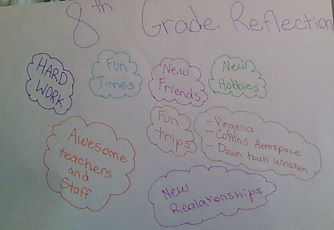 8th Grade Reflection
HARD
WORK
Fun
Times
New
Friends
New
Hobbies
Fun
trips
- Viregenia
- Collins Aerospace
- Down town winston
Awesome
teachers
and
Staff
New
Realationships